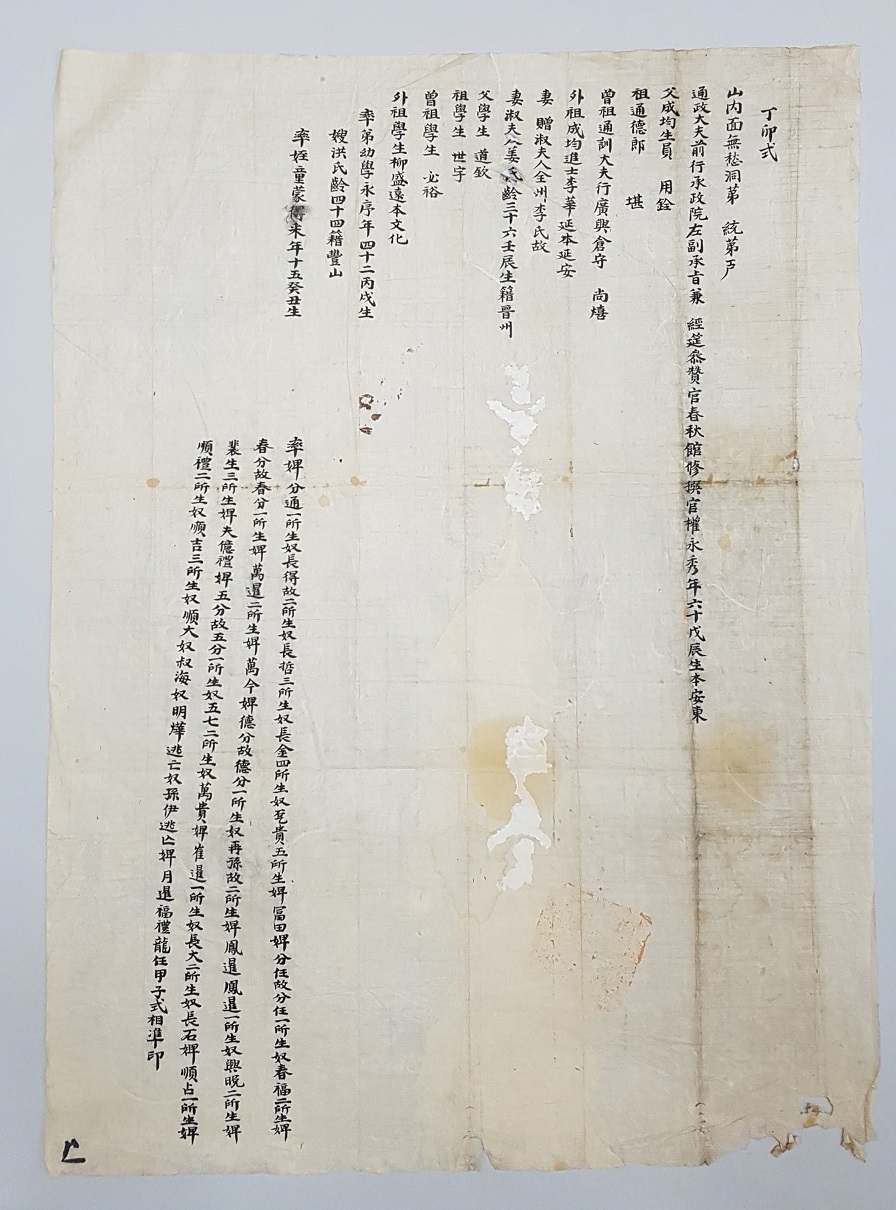 丁卯式
山內面無愁洞第 統第 戶
通政大夫前行承政院左副承旨兼 經筵參贊官春秋館修撰官權永秀年六十戊辰生本安東
父成均生員 用銓
祖通德郎 堪
曾祖通訓大夫行廣興倉守 尚熺
外祖成均進士李華延本延安
妻 贈淑夫人全州李氏故
妻淑夫人姜氏齡三十六壬辰生籍晉州
父學生 道欽
祖學生 世宇
曾祖學生 必裕
外祖學生柳盛遠本文化
率弟幼學永序年四十二丙戌生
嫂洪氏齡四十四籍豐山
率姪童蒙得來年十五癸丑生
率婢分通一所生奴長得故二所生奴長哲三所生奴長金四所生奴 貴五所生婢冨田婢分任故分任一所生奴春福二所生婢
春分故春分一所生婢萬暹二所生婢萬今婢德分故德分一所生奴再孫故二所生婢鳳暹鳳暹一所生奴興晩二所生婢
裴生三所生婢夫億禮婢五分故五分一所生奴五七二所生奴萬貴婢崔暹一所生奴長大二所生奴長石婢順占一所生婢
順禮二所生奴順吉三所生奴順大奴叔海奴明燁逃亡奴孫伊逃亡婢月暹福禮龍任甲子式相準印